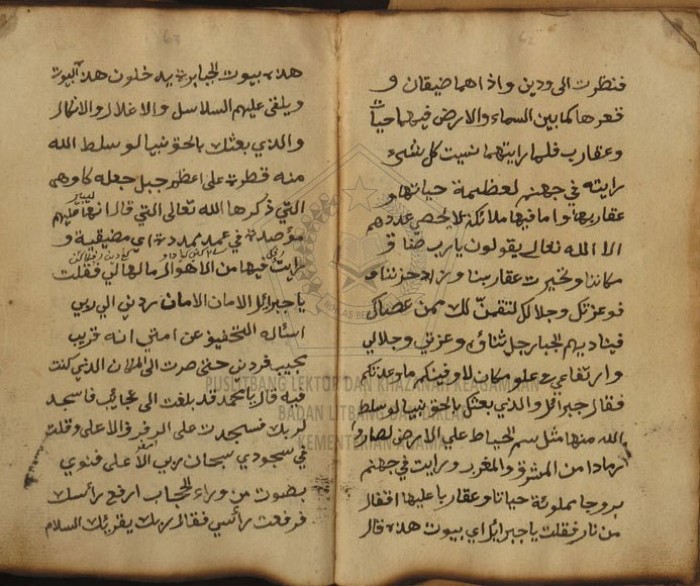 فنظرت الى ودين واذاهما ضيقان و
قعرها كما بين السماء والارض فيهما حيات
وعقارب فلما رايتهما نسيت كل شيء
رايته في جهنم لعظيمة حياتها و
عقاربها واما فيها ملائكة لا يحصى عددهم
الا الله تعالى يقولون يا رب ضاق
مكاننا وتحيرت عقاربنا وزاد حزننا
فوعزتك وجلالك لننتقمن لك ممن عصاك
فيناديهم الجبار جل ثناؤه وعزتي وجلالي
وارتفاعي في علو مكان لاوفينكم ما وعدتكم
فقال جبرائل والذي بعثك بالحق نبيا لو سلط
الله منها مثل سم الخياط على الارض لصارة
رمادا من المشرق والمغرب ورايت في جهنم
بروجا مملوئة حياتا وعقاربا عليها اقفال
من نار فقلت يا جبرائل اي بيوت هذه قال
هذه بيوت الجبابرة يدخلون هذ البيوت
ويلقى عليهم السلاسل والاغلال والانكال
والذي بعثك بالحق نبيا لو سلط الله
منه قطرة على اعظم جبل جعله كاوهى
التي ذكرها الله تعالى التي قال انها عليهم
مؤصدة في عمد ممددة اي مضيقية و
رايت فيها من الاهوال ما لهالني فقلت
يا جبرائل الامان الامان ردني الى ربي
اسئاله التخفيف عن امتي انه قريب
مجيب فردني حتى صرت الى المكان الذي كنت
فيه قال يا محمد قد بلغت الى عجايب فاسجد
لربك فسجدت على الرفرف الاعلى وقلت
في سجودي سبحان ربي الاعلى فنودي
بصوت من وراء الحجاب ارفع رائسك
فرفعت رائسي فقال ربك يقرئك السلام
PUSLITBANG LEKTUR DAN KHAZANAH KEAGAMAAN
BADAN LITBANG DAN DIKLAT
KEMENTERIAN AGAMA